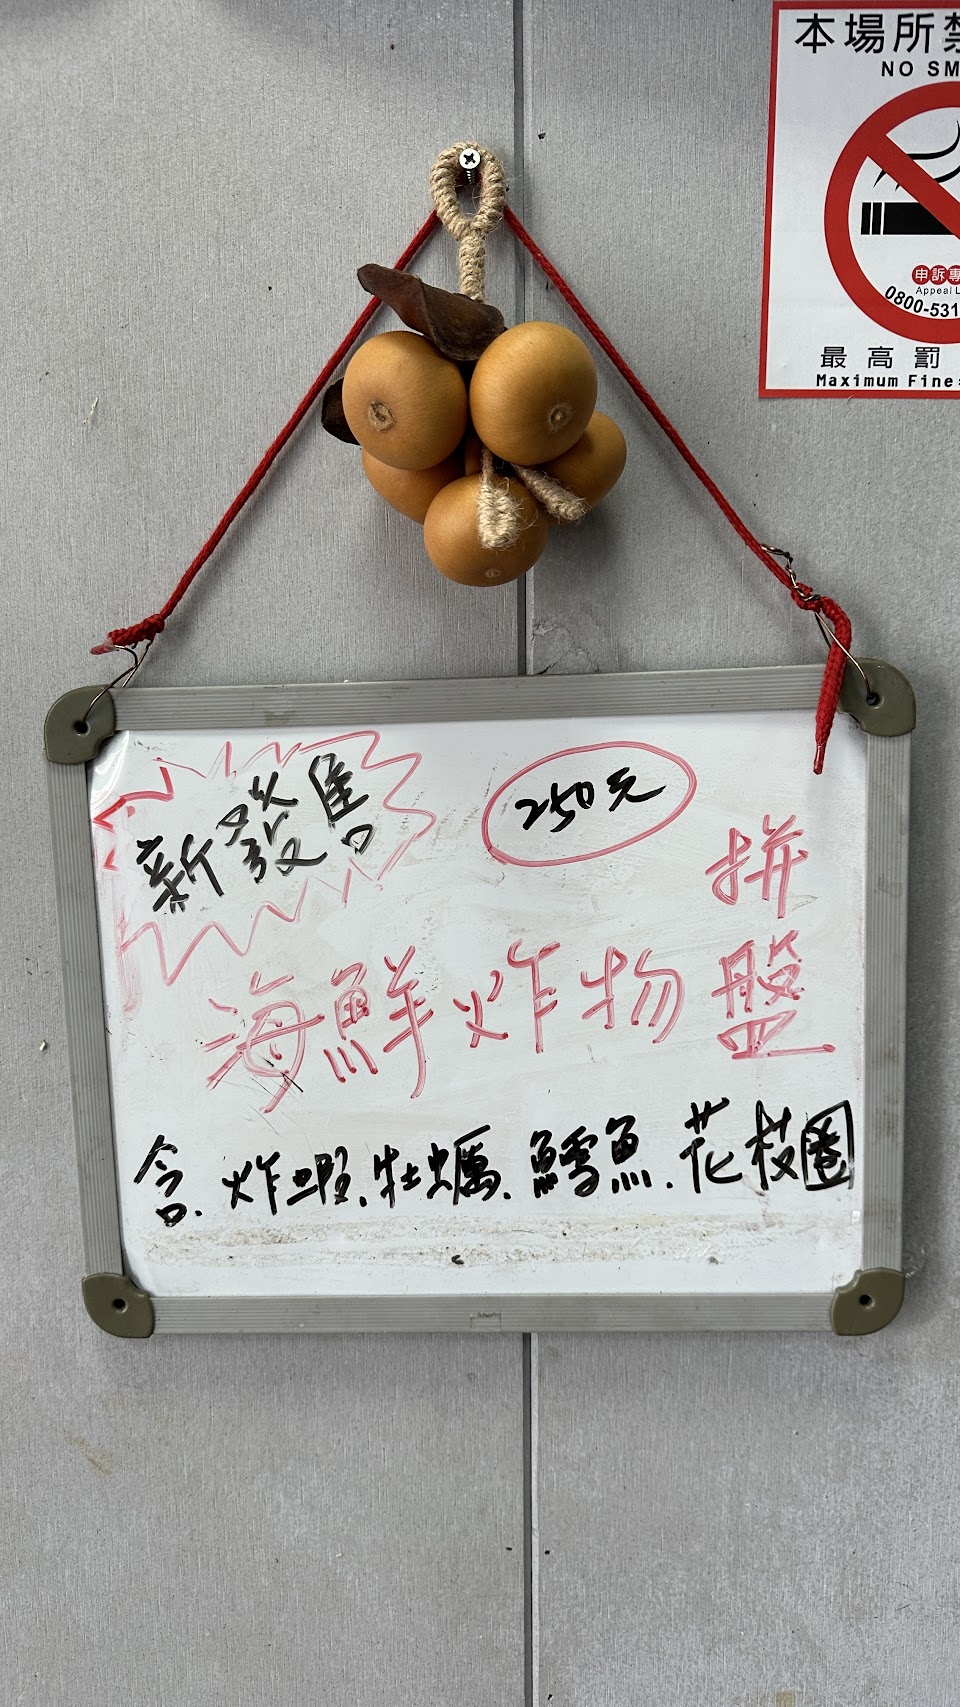 本場所禁
NO SM
申訴專
Appeal L
0800-531
最高罰
Maximum Fine
新發售
250元
拼
海鮮炸物盤
含.炸蝦.牡蠣.鱈魚.花枝圈